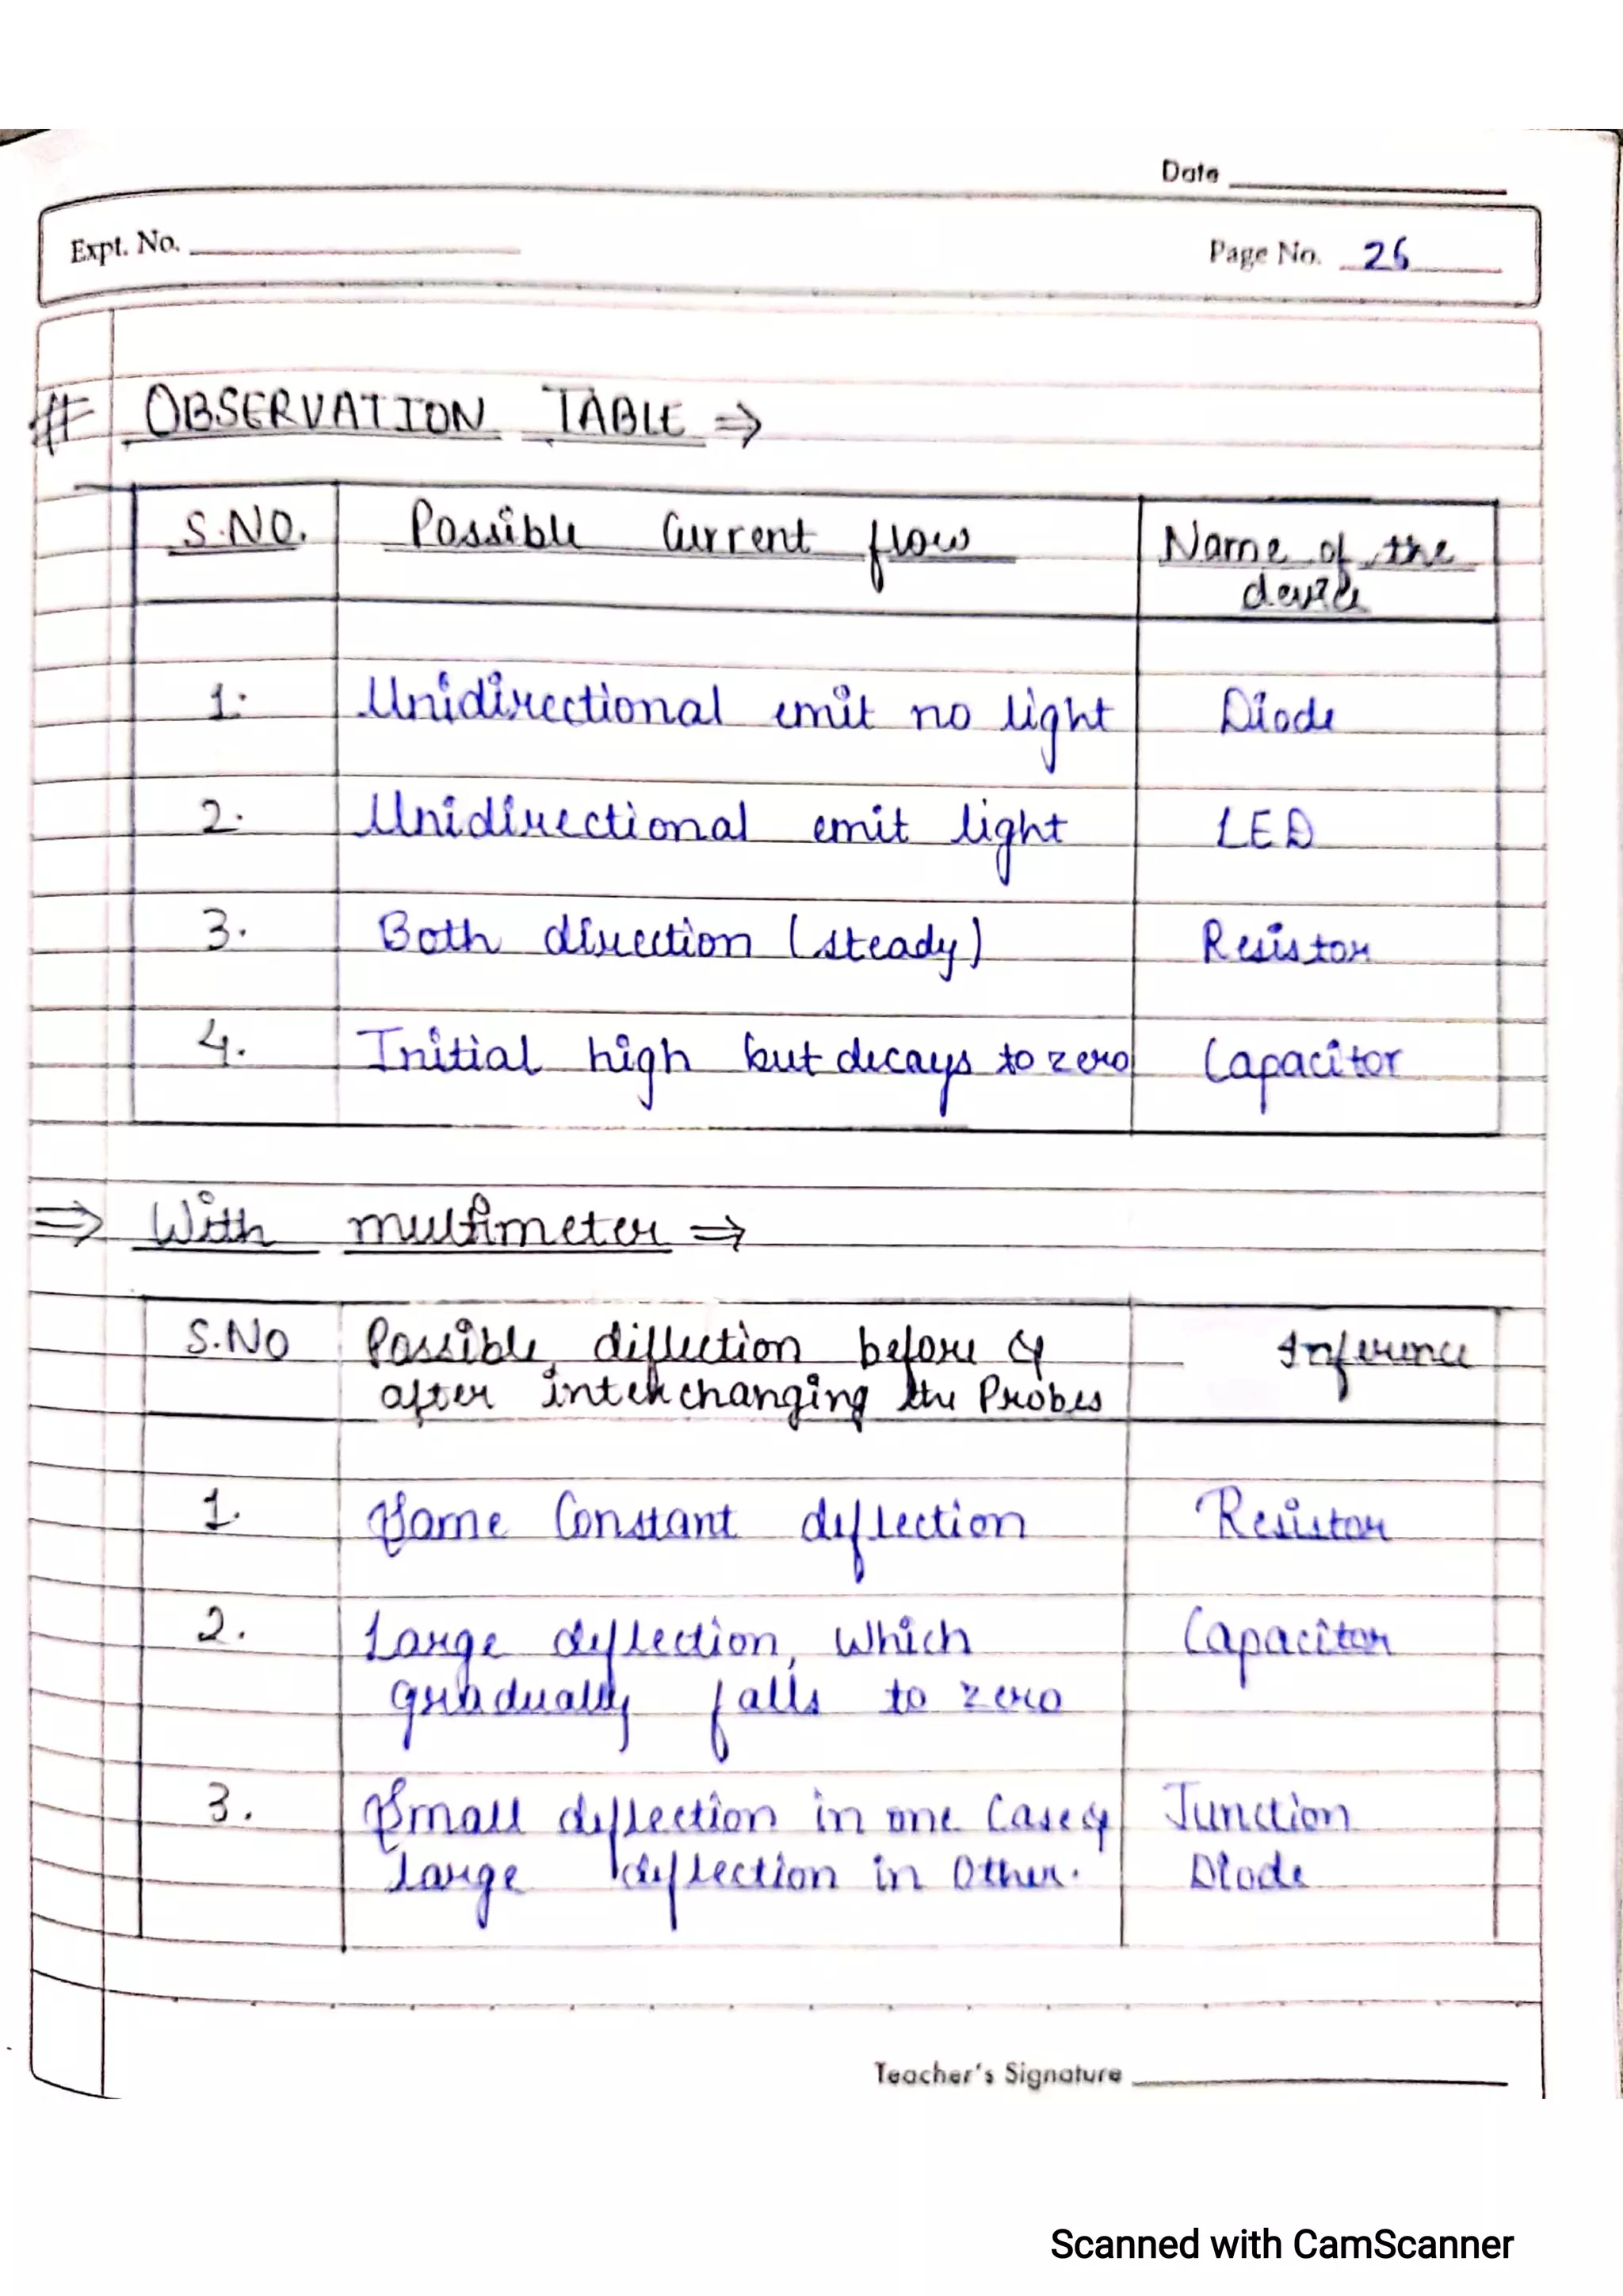 Date
Expt. No.
Page No. 26
# OBSERVATION TABLE ⇒
S.NO. Possible Current flow Name of the
device
1. Unidirectional emit no light Diode
2. Unidirectional emit light LED
3. Both direction (steady) Resistor
4. Initial high but decays to zero Capacitor
⇒ With multimeter ⇒
S.NO Possible diflection before & Inference
after interchanging the Probes
1. Same Constant deflection Resistor
2. Large deflection, which Capacitor
gradually falls to zero
3. Small deflection in one Case & Junction
large deflection in Other. Diode
Teacher's Signature
Scanned with CamScanner